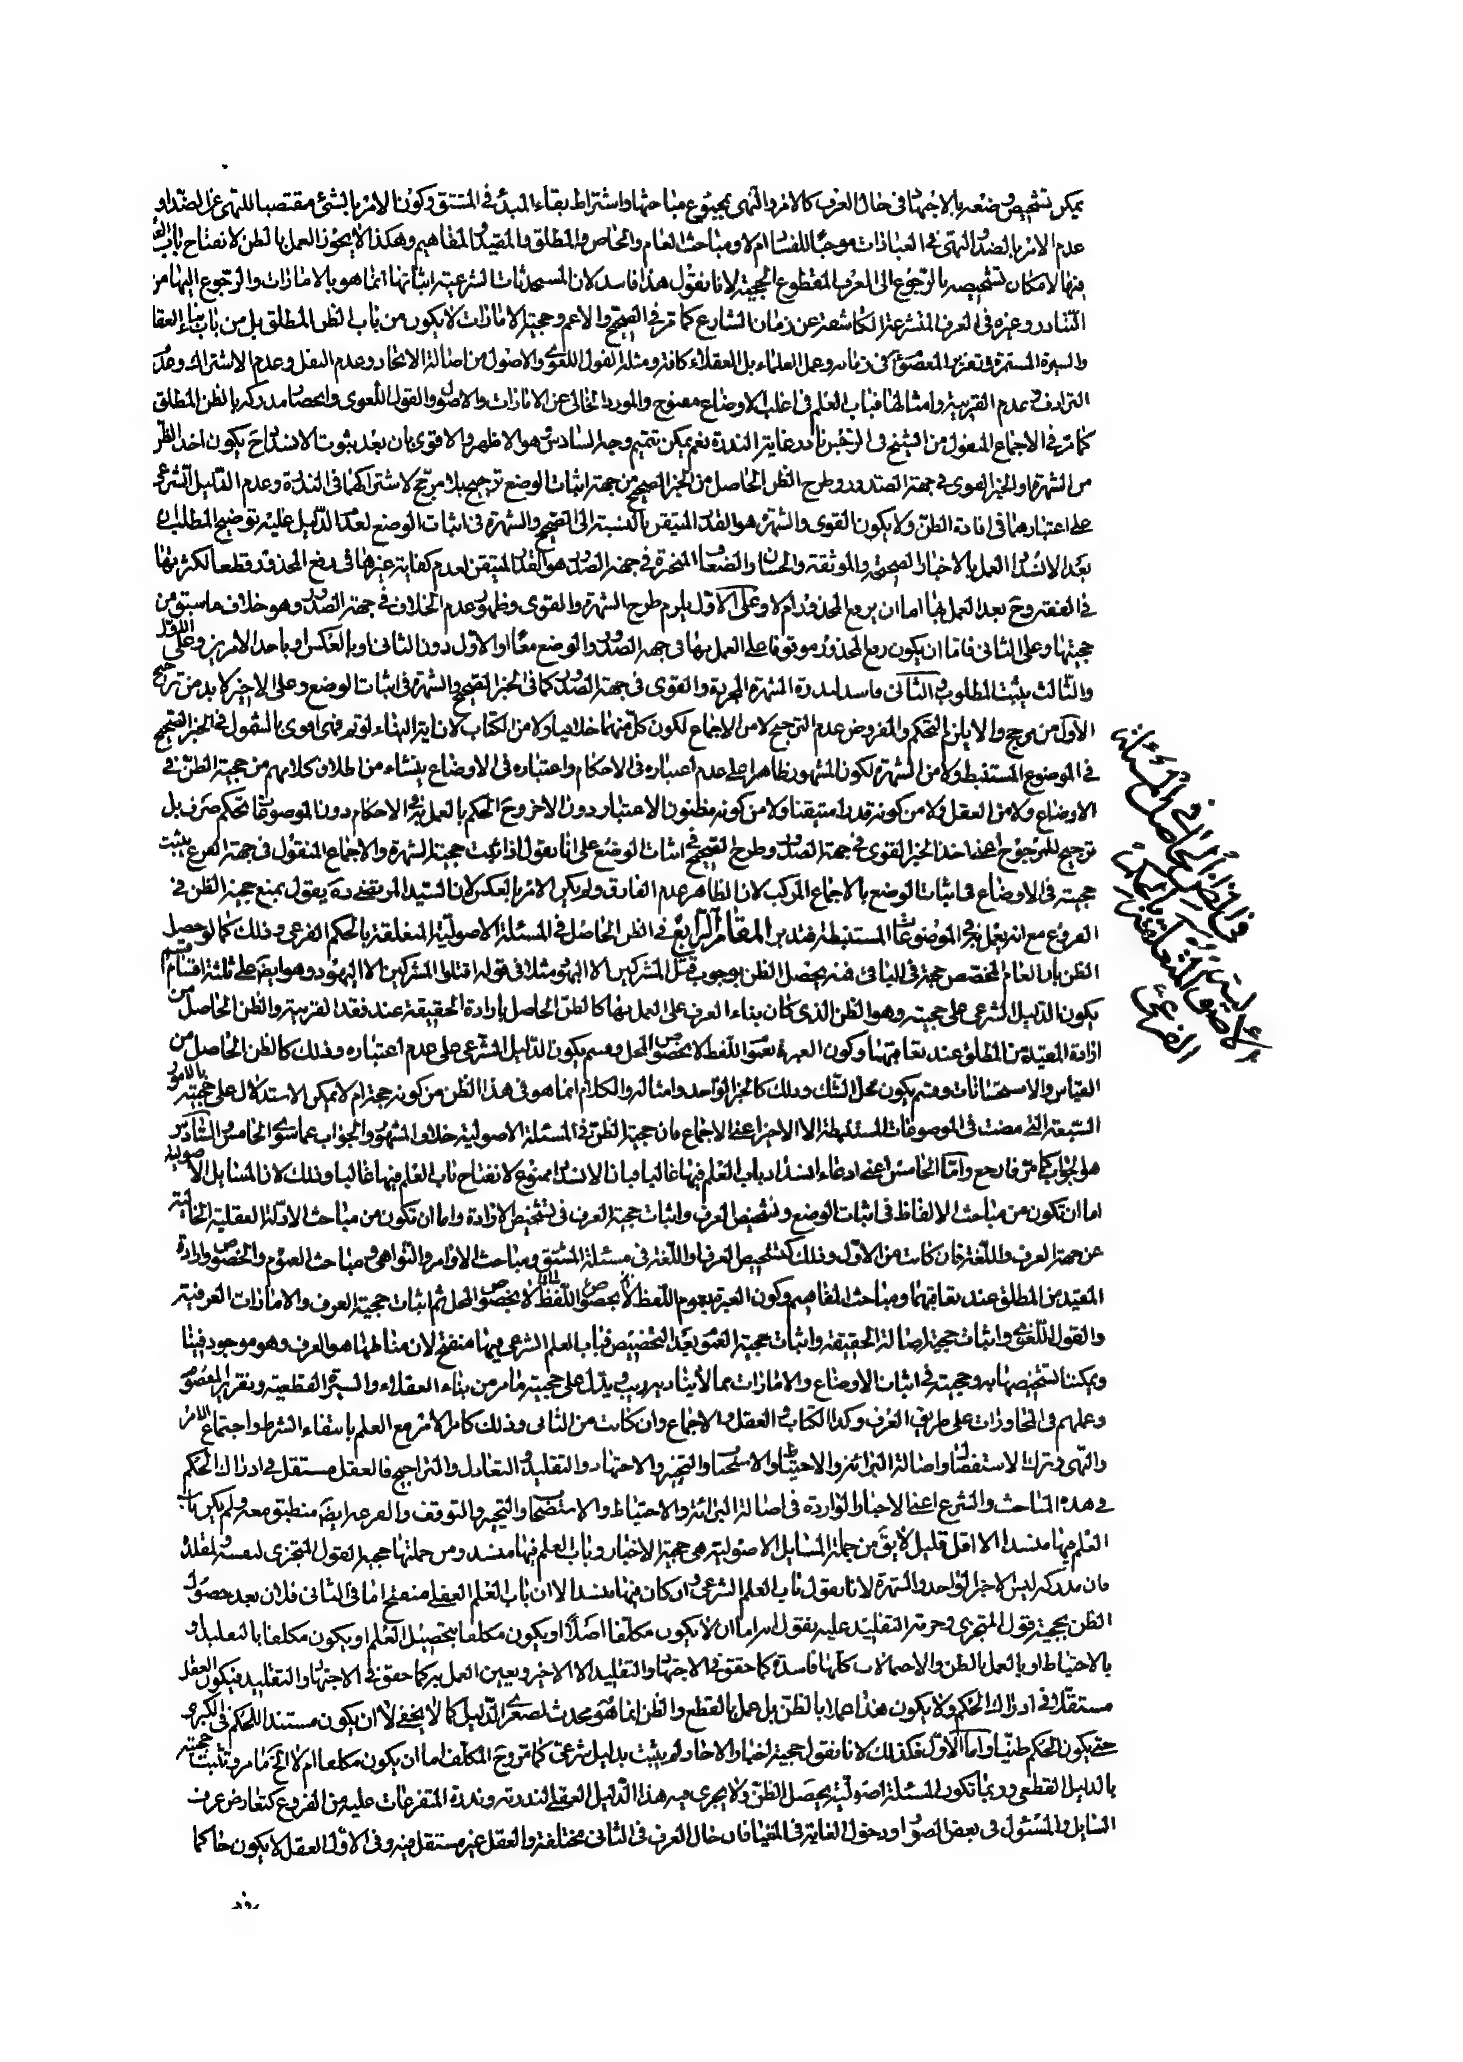 يمكن تشخيص وضعه بالاجتهاد في حال العرف كالامر والنهى بجميع مباحثها واشتراط بقاء المبدء في المشتق وكون الامر بالشئ مقتضيا للنهى عن الضد او
عدم الامر بالضد والنهى في العبادات موجبا للفساد ام لا ومباحث العام والخاص والمطلق والمقيد والمفاهيم وهكذا لا يجوز العمل بالظن لانفتاح باب العلم
فيها لامكان تشخيصه بالرجوع الى العرف المقطوع الحجية لانا نقول هذا فاسد لان المستحدثات الشرعية اثباتها انما هو بالامارات والرجوع اليها من
التبادر وغيره في العرف المتشرعة الكاشفة عن زمان الشارع كما مر في الصحيح والاعم وحجية الامارات لا يكون من باب الظن المطلق بل من باب بناء العقلاء
والسيرة المستمرة وتقرير المعصوم في زمانه وعمل العلماء بل العقلاء كافة ومثله القول اللغوى والاصول من اصالة الاتحاد وعدم النقل وعدم الاشتراك وعدم
الترادف وعدم القرينة وامثالها فباب العلم في اغلب الاوضاع مفتوح والمورد الخالى عن الامارات والاصول والقول اللغوى وانحصار مدركه بالظن المطلق
كما مر في الاجماع المنقول من الشيخ في نادر غاية الندرة نعم يمكن تتميم وجه السادس هو الاظهر والاقوى بان بعد ثبوت الانسداد ح يكون اخذ الظن
من الشهرة والخبر القوى في جهة الصدور وطرح الظن الحاصل من الخبر الصحيح من جهة اثبات الوضع ترجيح بلا مرجح لاشتراكهما في الندرة وعدم الدليل الشرعى
على اعتبارهما في افادة الظن ولا يكون القوى والشهرة هو القدر المتيقن بالنسبة الى الصحيح والشهرة في اثبات الوضع لعدم الدليل عليه توضيح المطلب ان
بعد الانسداد العمل بالاخبار الصحيحة والموثقة والحسان والضعاف المنجبرة في جهة الصدور هو القدر المتيقن لعدم كفاية غيرها في رفع المحذور قطعا لكثرتها
في الفقه وح بعد العمل بها اما ان يرفع المحذور ام لا وعلى الاول يلزم طرح الشهرة والقوى وظهور عدم الخلاف في جهة الصدور وهو خلاف ما سبق من
حجيتها وعلى الثانى فاما ان يكون رفع المحذور موقوفا على العمل بها في جهة الصدور والوضع معا او الاول دون الثانى او بالعكس او باحد الامرين وعلى الاول
والثالث يثبت المطلوب والثانى فاسد لندرة الشهرة المجردة والقوى في جهة الصدور كما في الخبر الصحيح والشهرة في اثبات الوضع وعلى الاخير لا بد من ترجيح
الاول من مرجح والا يلزم التحكم والمفروض عدم الترجيح لا من الاجماع لكون كل منهما خلافيا ولا من الكتاب لان اية النباء لو تم فهى اقوى بالشمول في الخبر الصحيح
في الموضوع المستنبط ولا من الشهرة لكون المشهور ظاهرا على عدم اعتباره في الاحكام واعتباره في الاوضاع ينشاء من اطلاق كلامهم من حجية الظن في
الاوضاع ولا من العقل ولا من كونه قدرا متيقنا ولا من كونه مظنون الاعتبار دون الاخر وح الحكم بالعمل به في الاحكام دون الموضوعات تحكم صرف بل
ترجيح للمرجوح اعنى اخذ الخبر القوى في جهة الصدور وطرح الصحيح في اثبات الوضع على انا نقول اذا ثبت حجية الشهرة والاجماع المنقول في جهة الفرع يثبت
حجيته في الاوضاع في اثبات الوضع بالاجماع المركب لان الظاهر عدم الفارق ولم يكن الامر بالعكس لان السيد المرتضى ره يقول بمنع حجية الظن في
الفروع مع انه يعمل به في الموضوعات المستنبطة فتدبر المقام الرابع في الظن الحاصل في المسئلة الاصولية المتعلقة بالحكم الفرعى وذلك كما لو حصل
الظن بان العام المخصص حجة في الباقى فنه يحصل الظن بوجوب قتل المشركين الا اليهود مثلا في قوله اقتلوا المشركين الا اليهود وهو ايضا على ثلثة اقسام قسم
يكون الدليل الشرعى على حجيته وهو الظن الذى كان بناء العرف على العمل بها كالظن الحاصل بارادة الحقيقة عند فقد القرينة والظن الحاصل من
ارادة المقيد من المطلق عند تعاقبهما وكون العبرة بعموم اللفظ لا بخصوص المحل وقسم يكون الدليل الشرعى على عدم اعتباره وذلك كالظن الحاصل من
القياس والاستحسانات وقسم يكون محل الشك وذلك كالخبر الواحد وامثاله والكلام انما هو في هذا الظن من كونه حجة ام لا يمكن الاستدلال على حجيته بالامور
السبعة التى مضت في الموضوعات المستنبطة الا الاخير اعنى الاجماع فان حجية الظن في المسئلة الاصولية خلاف المشهور والجواب عما سوى الخامس والسادس
هو الجواب كما مر فارجع واما الخامس اعنى ادعاء انسداد باب العلم فيها غالبا فبان الانسداد ممنوع لانفتاح باب العلم فيها غالبا وذلك لان المسايل الاصولية
اما ان تكون من مباحث الالفاظ في اثبات الوضع وتشخيص العرف واثبات حجية العرف في تشخيص الارادة واما ان تكون من مباحث الادلة العقلية الخالية
عن جهة العرف واللغة فان كانت من الاول وذلك كتشخيص العرف او اللغة في مسئلة المشتق ومباحث الاوامر والنواهى ومباحث العموم والخصوص وارادة
المقيد من المطلق عند تعاقبهما ومباحث المفاهيم وكون العبرة بعموم اللفظ لا بخصوص المحل ثم اثبات حجية العرف والامارات العرفية
والقول اللغوى واثبات حجية اصالة الحقيقة واثبات حجية العموم بعد التخصيص فباب العلم الشرعى فيها منفتح لان مناطها هو العرف وهو موجود فينا
ويمكننا تشخيصها به وحجيته في اثبات الاوضاع والامارات مما لا ينادى به ريب ويدل على حجيته ما مر من بناء العقلاء والسيرة القطعية وتقرير المعصوم
وعملهم في المحاورات على طريق العرف وكذا الكتاب والعقل والاجماع وان كانت من الثانى وذلك كامر الامر مع العلم بانتفاء الشرط واجتماع الامر
والنهى وترك الاستفصال واصالة البرائة والاحتياط والاستصحاب والتخيير والاجتهاد والتقليد والتعادل والتراجيح فالعقل مستقل في ادراك الحكم
في هذه المباحث والشرع اعنى الاخبار الواردة في اصالة البرائة والاحتياط والاستصحاب والتخيير والتوقف والقرعة ايضا منطبق معه ولم يكن باب
العلم فيها منسدا الا اقل قليل لا يق من جملة المسايل الاصولية هى حجية الاخبار وباب العلم فيها منسد ومن جملتها حجية القول المتجزى لنفسه ولمقلده
فان مدركه ليس الا خبر الواحد والشهرة لانا نقول باب العلم الشرعى وان كان فيها منسدا الا ان باب العلم العقلى منفتح اما في الثانى فلان بعد حصول
الظن بحجية قول المتجزى وحرمة التقليد عليه نقول انه اما ان لا يكون مكلفا اصلا او يكون مكلفا بتحصيل العلم او يكون مكلفا بالتقليد او
بالاحتياط او بالعمل بالظن والاحتمالات كلها فاسدة كما حقق في الاجتهاد والتقليد الا الاخير ويعين العمل به كما حقق في الاجتهاد والتقليد فيكون العقل
مستقلا في ادراك الحكم ولا يكون هذا عملا بالظن بل عمل بالقطع والظن انما هو محدث لصغرى الدليل كما لا يخفى لا ان يكون مستندا للحكم في الكبرى
حتى يكون الحكم ظنيا واما الاول فكذلك لانا نقول حجية اخبار الاحاد لم يثبت بدليل شرعى كما مر وح المكلف اما ان يكون مكلفا ام لا الخ ما مر وتثبت حجيته
بالدليل القطعى وربما تكون المسئلة اصولية يحصل الظن ولا يجرى فيه هذا الدليل العقلى لندرته وندرة المتفرعات عليه من الفروع كتعارض عرف
السايل والمسئول في بعض الصور او دخول الغاية في المغيا فان حال العرف في الثانى مختلفة والعقل غير مستقل فيه وفى الاول العقل لا يكون حاكما
في الظن الحاصل في المسئلة
الاصولية المتعلقة بالحكم
الفرعى